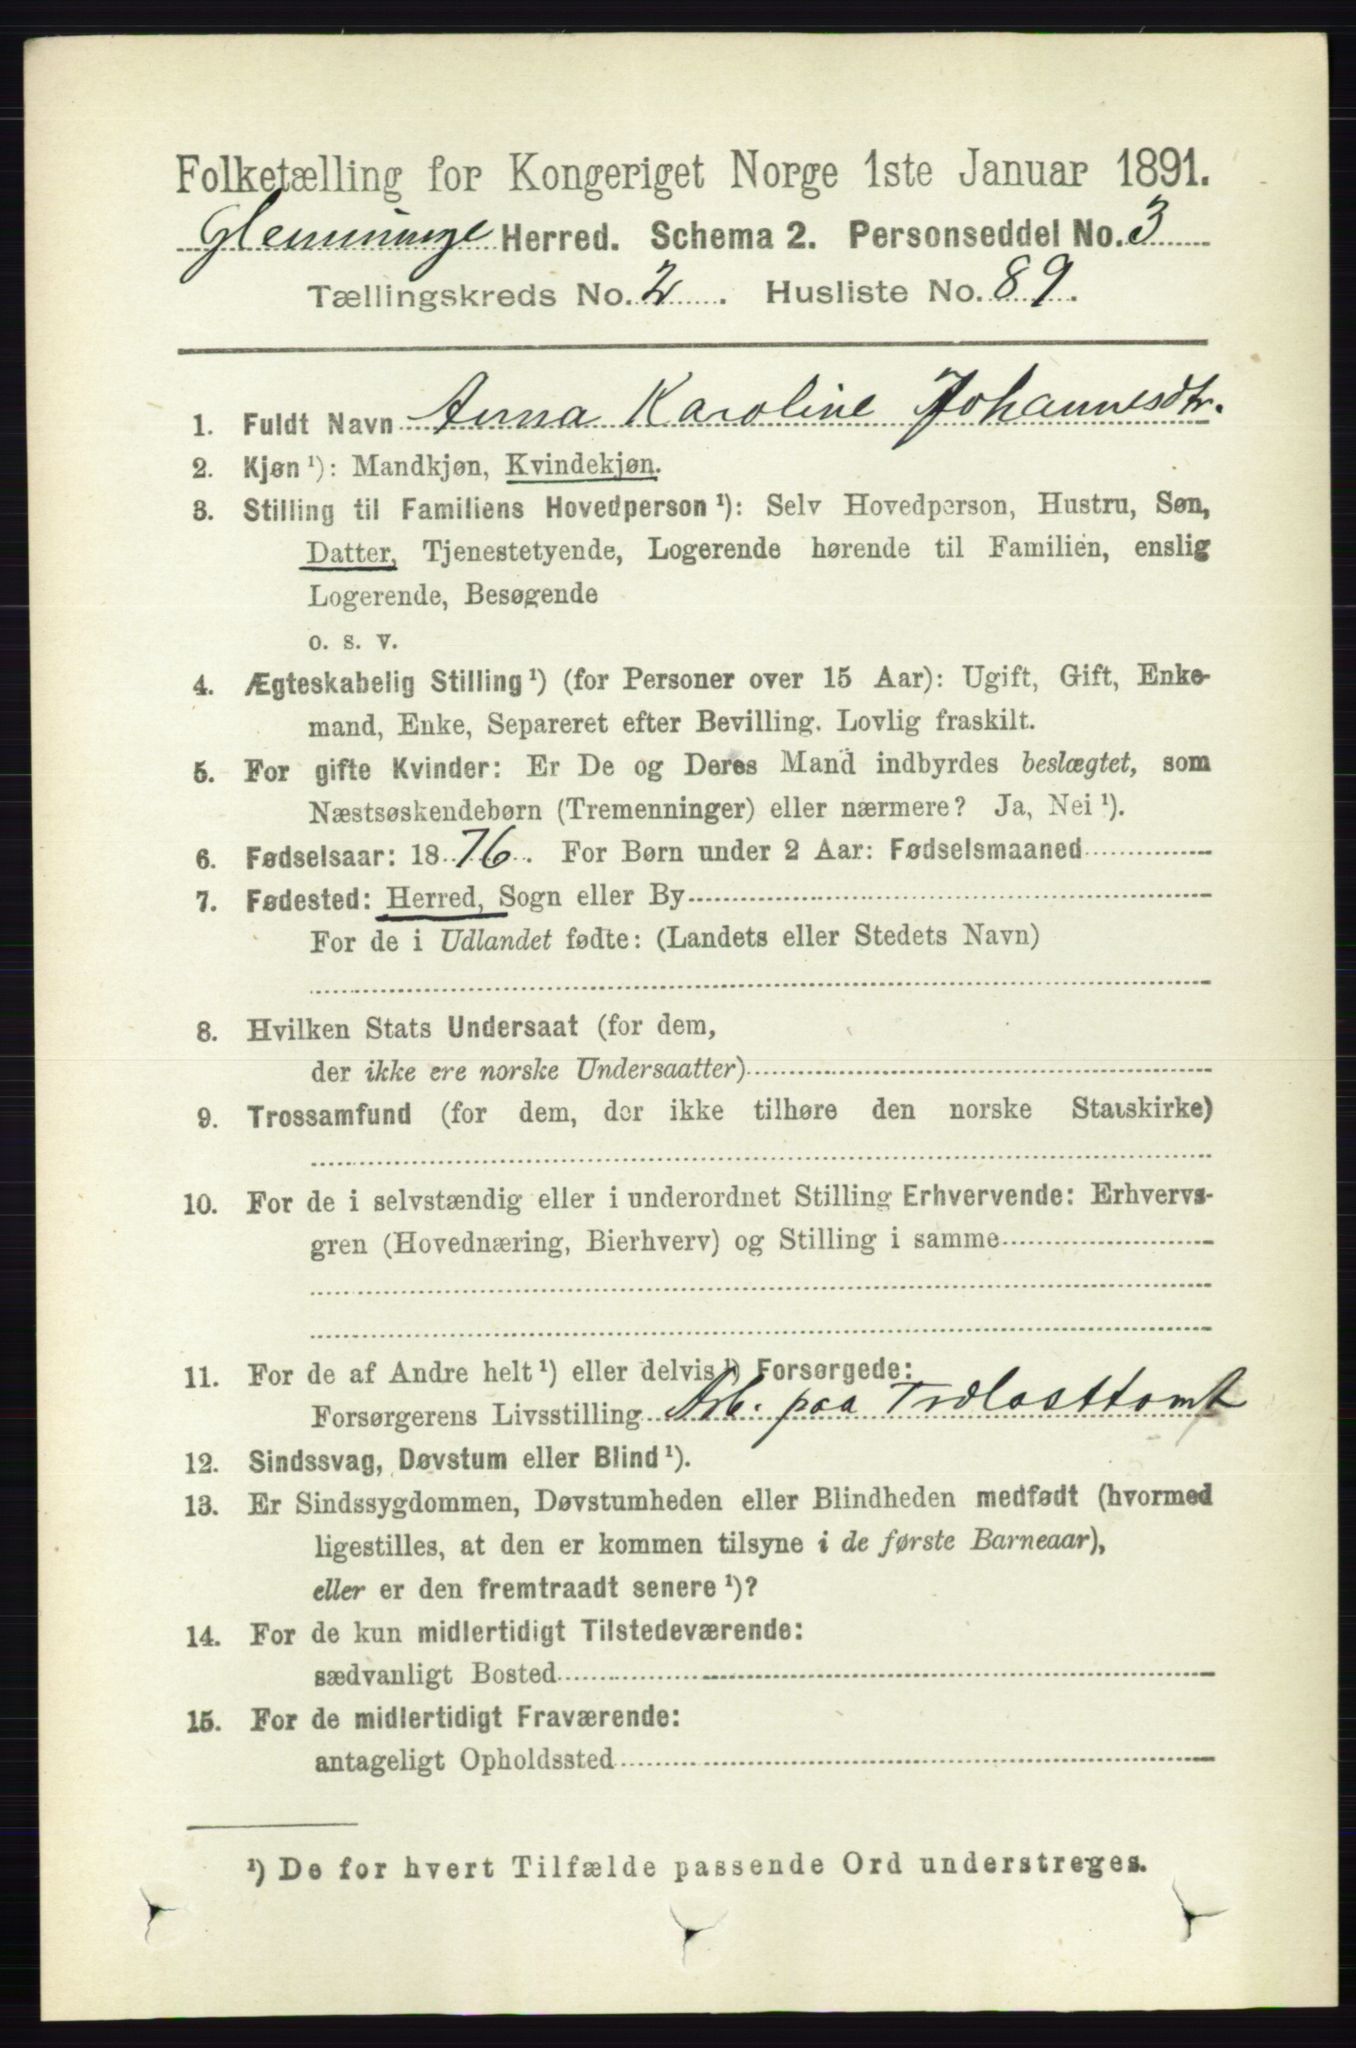 Folketælling for Kongeriget Norge 1ste Januar 1891.
Glemminge Herred. Schema 2. Personseddel No. 3
Tællingskreds No. 2. Husliste No. 89.
1. Fuldt Navn Anna Karoline Johannesdtr.
2. Kjøn ¹): Mandkjøn, Kvindekjøn.
3. Stilling til Familiens Hovedperson ¹): Selv Hovedperson, Hustru, Søn,
Datter, Tjenestetyende, Logerende hørende til Familien, enslig
Logerende, Besøgende
o. s. v.
4. Ægteskabelig Stilling ¹) (for Personer over 15 Aar): Ugift, Gift, Enke-
mand, Enke, Separeret efter Bevilling. Lovlig fraskilt.
5. For gifte Kvinder: Er De og Deres Mand indbyrdes beslægtet, som
Næstsøskendebørn (Tremenninger) eller nærmere? Ja, Nei ¹).
6. Fødselsaar: 1876. For Børn under 2 Aar: Fødselsmaaned
7. Fødested: Herred, Sogn eller By
For de i Udlandet fødte: (Landets eller Stedets Navn)
8. Hvilken Stats Undersaat (for dem,
der ikke ere norske Undersaatter)
9. Trossamfund (for dem, der ikke tilhøre den norske Statskirke)
10. For de i selvstændig eller i underordnet Stilling Erhvervende: Erhvervs-
gren (Hovednæring, Bierhverv) og Stilling i samme
11. For de af Andre helt ¹) eller delvis ¹) Forsørgede:
Forsørgerens Livsstilling Arb. paa Trælasttomt
12. Sindssvag, Døvstum eller Blind ¹).
13. Er Sindssygdommen, Døvstumheden eller Blindheden medfødt (hvormed
ligestilles, at den er kommen tilsyne i de første Barneaar),
eller er den fremtraadt senere ¹)?
14. For de kun midlertidigt Tilstedeværende:
sædvanligt Bosted
15. For de midlertidigt Fraværende:
antageligt Opholdssted
¹) De for hvert Tilfælde passende Ord understreges.